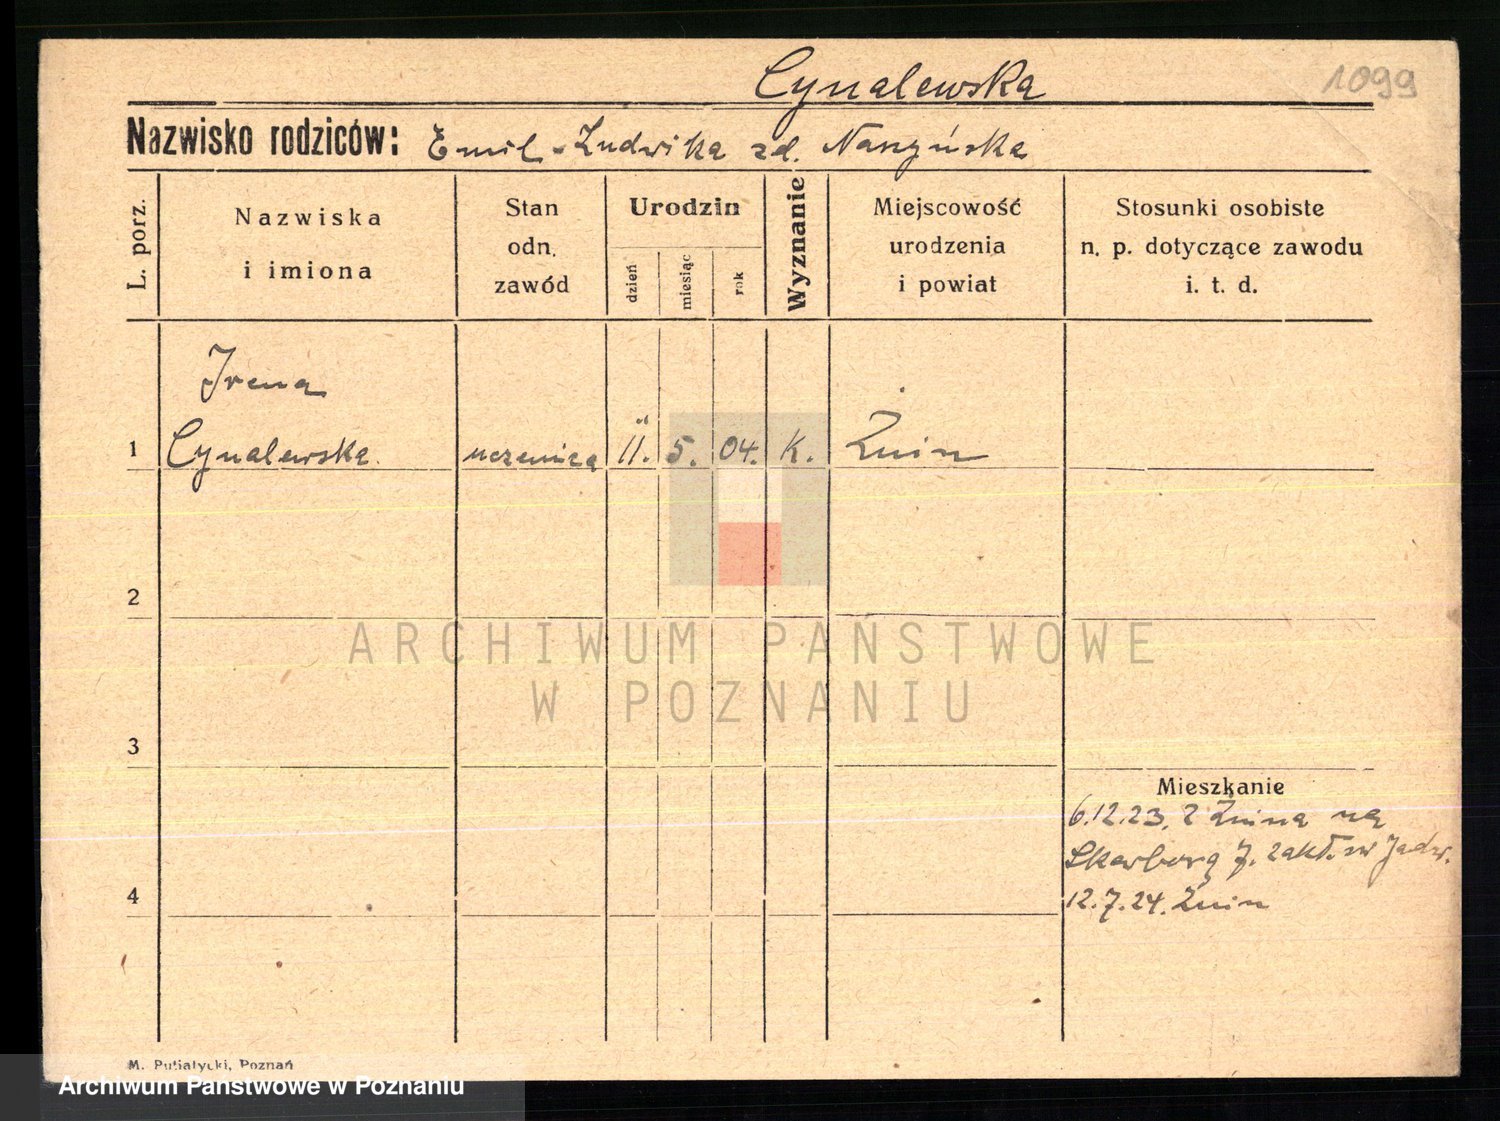 Cynalewska
1099
Nazwisko rodziców: Emil - Ludwika zd. Naszyńska
L. porz.
Nazwiska
i imiona
Stan
odn.
zawód
Urodzin
dzień
miesiąc
rok
Wyznanie
Miejscowość
urodzenia
i powiat
Stosunki osobiste
n. p. dotyczące zawodu
i. t. d.
Irena
1 Cynalewska uczenica 11. 5. 04. K. Żnin
2
ARCHIWUM PAŃSTWOWE
W POZNANIU
3
Mieszkanie
6.12.23. z Żnina na
Skarborą 7. zakł. św Jadw.
4
12.7.24. Żnin
M. Putiatycki, Poznań
Archiwum Państwowe w Poznaniu